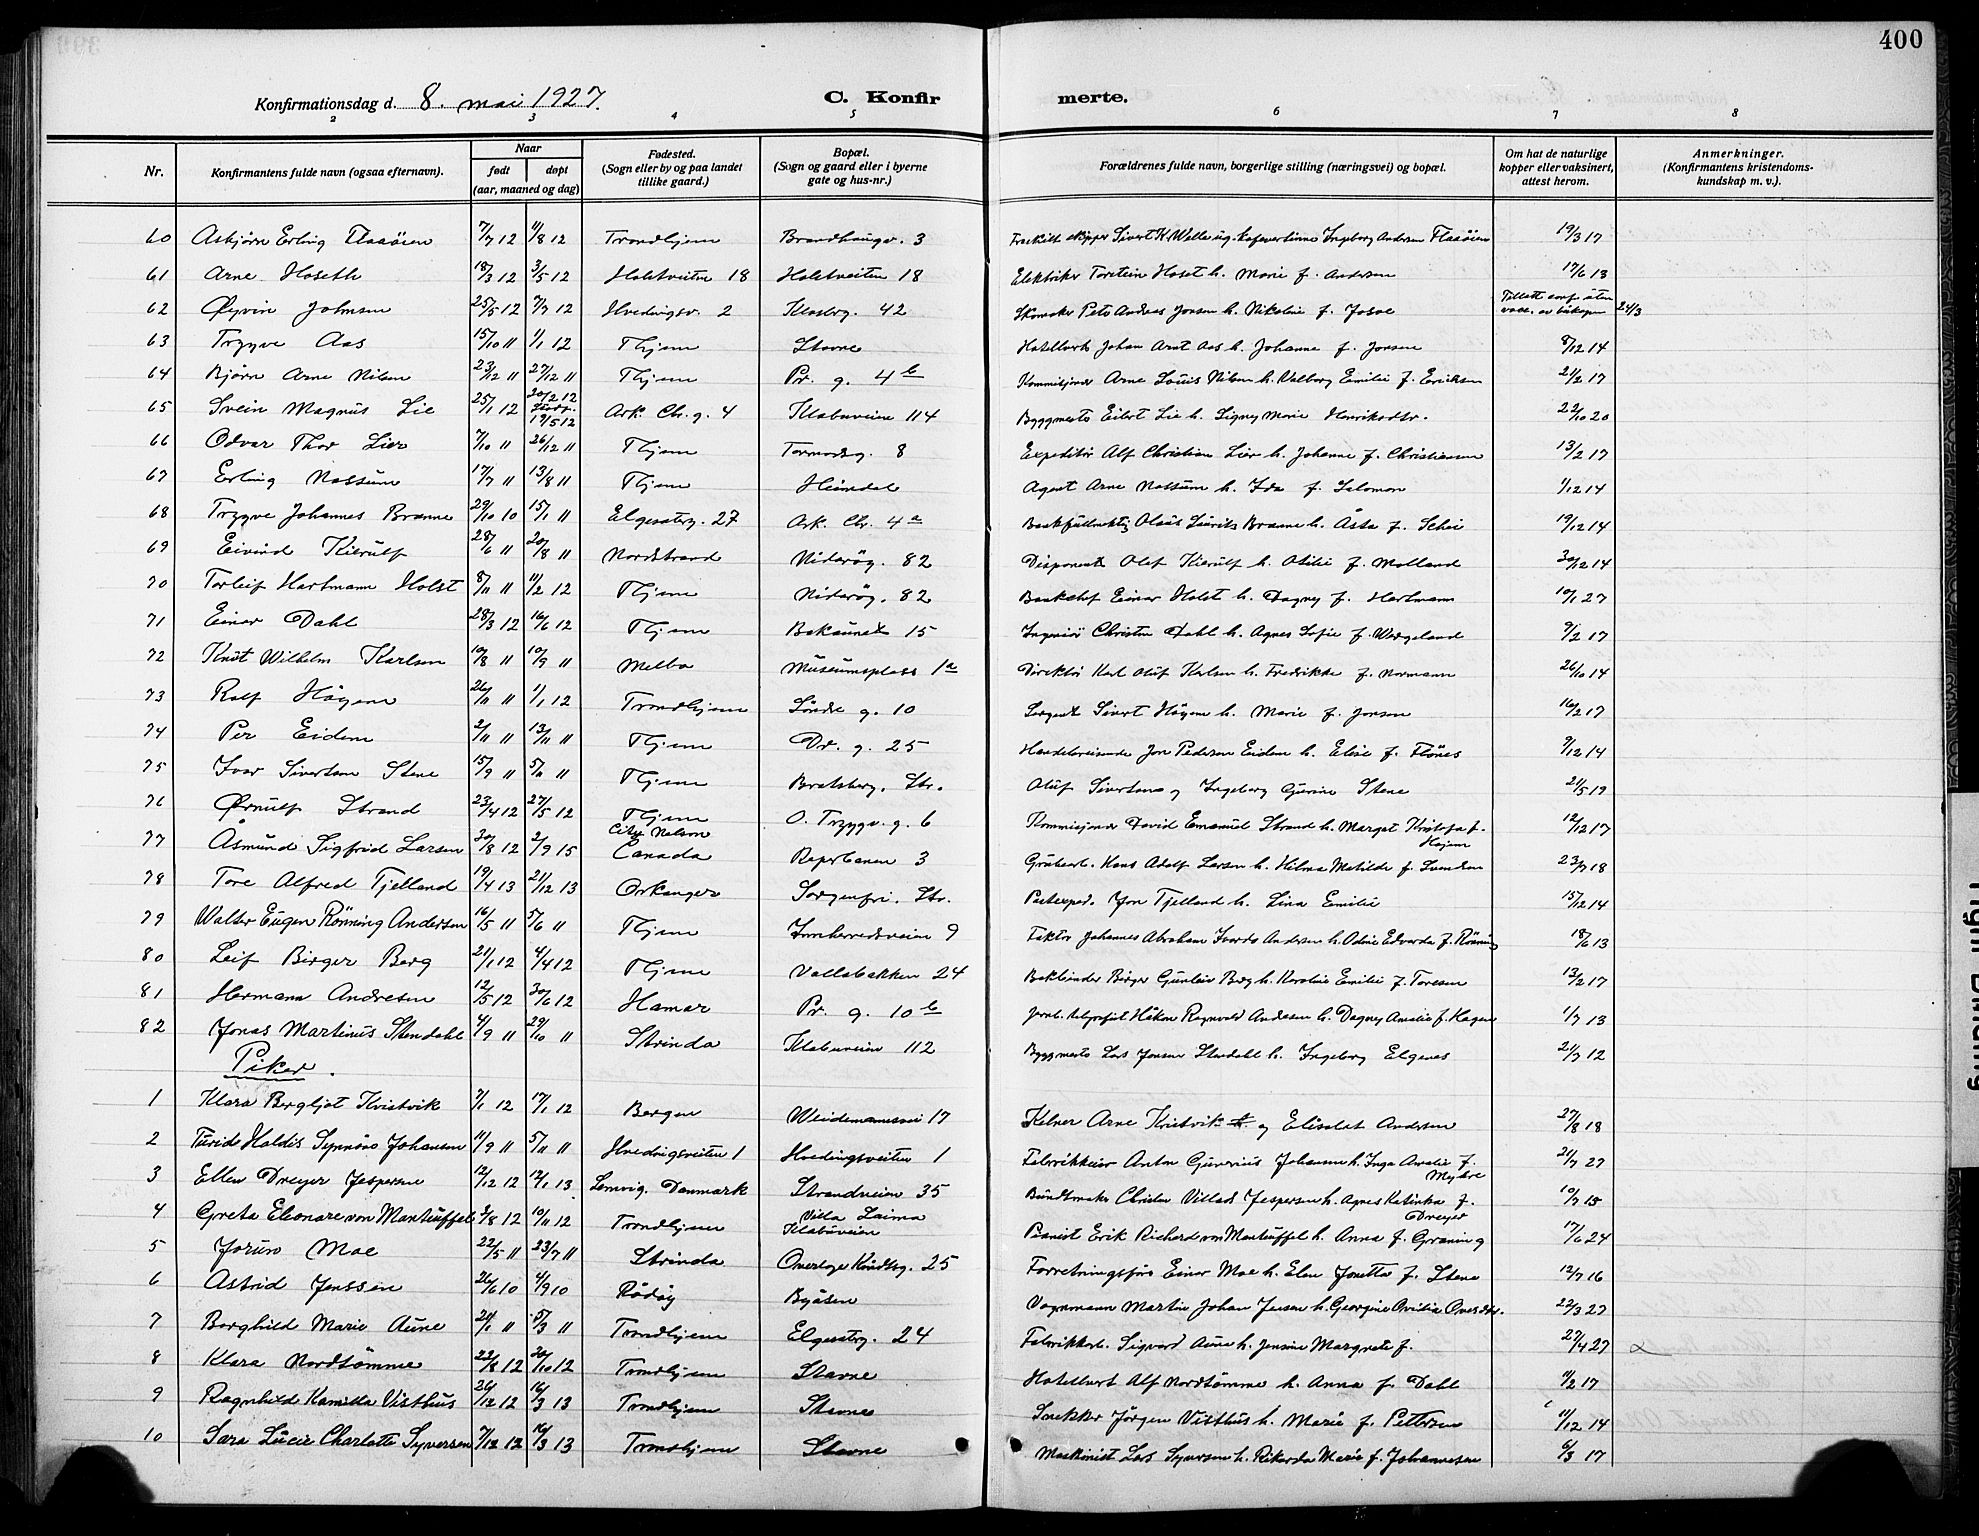 400
Konfirmationsdag d. 8. mai 1927.
C. Konfirmerte.
2 3 4 5 6 7 8
Nr.
Konfirmantens fulde navn (ogsaa efternavn).
Naar
født døpt
(aar, maaned og dag)
Fødested.
(Sogn eller by og paa landet
tillike gaard.)
Bopæl.
(Sogn og gaard eller i byerne
gate og hus-nr.)
Forældrenes fulde navn, borgerlige stilling (næringsvei) og bopæl.
Om hat de naturlige
kopper eller vaksinert,
attest herom.
Anmerkninger.
(Konfirmantens kristendoms-
kundskap m. v.).
60 Asbjørn Erling Flasöien 7/7 12 11/8 12 Trondhjem 3 Ingeborg Andersen Flasöien 19/3 17
61 Arne Hoseth 18/3 12 3/5 12 Holstveiten 18 Holstveiten 18 Elektriker Torstein Hoset h. Marie f. Andersen 17/6 13
62 Øyvin Johnsen 25/5 12 7/7 12 Hvedingsv. 2 Klosterg. 42 Skomaker Peter Andreas Jonsen h. Nikoline f. 24/3
63 Trygve Aas 15/10 11 1/1 12 Thjem Stavne Johan Arnt Aas h. Johanne f. Jonsen 8/12 14
64 Bjørn Arne Nilsen 23/12 11 27/12 11 Thjem Pr. g. 4b Kommisjonær Arne Louis Nilsen h. Valborg Emilie f. Eriksen 21/2 17
65 Svein Magnus Lie 25/1 12 20/2 12 19/5 12 Ark. Chr. g. 4 Klabuveien 114 Byggmester Eilert Lie h. Signe Marie Henriksdtr. 22/10 20
66 Odvar Thor Lier 7/10 11 26/12 11 Thjem Tormodsg. 8 Expeditör Alf Christian Lier h. Johanne f. Christiansen 13/2 17
67 Erling Nossum 17/7 11 13/8 11 Thjem Heimdal Agent Arne Nossum h. Ida f. Salomon 1/12 14
68 Trygve Johannes Brænne 29/10 10 15/1 11 Elgesæterg. 27 Ark. Chr. 4a Bankfullmektig Olaus Brænne h. Åsta f. Schei 19/12 14
69 Eivind Kierulf 28/6 11 20/8 11 Nordstrand Niderög. 82 Disponent Olaf Kierulf h. Otilie f. Molland 30/12 14
70 Torleif Hartmann Holst 8/11 11 11/2 12 Thjem Niderög. 82 Banksjef Einar Holst h. Dagny f. Hartmann 10/1 27
71 Einar Dahl 28/3 12 16/6 12 Thjem Bakaunet 15 Ingeniör Christen Dahl h. Agnes Sofie f. Wergeland 9/2 17
72 Knut Wilhelm Karlsen 10/8 11 10/9 11 Melbo Museumsplass 1a Direktör Karl Oluf Karlsen h. Fredrikke f. Normann 26/10 14
73 Rolf Höyem 26/11 11 1/1 12 Trondhjem Söndre g. 10 Sergent Sivert Höyem h. Marie f. Jonsen 16/2 17
74 Per Eidem 2/11 11 13/11 11 Thjem Dr. g. 25 Handelsreisende Jon Pedersen Eidem h. Elise f. Flönes 9/12 14
75 Ivar Sivertsen Stene 15/9 11 5/11 11 Thjem Bratsberg. Str. Oluf Sivertsen og Ingeborg Gurine Stene 21/5 19
76 Ørnulf Strand 23/4 12 27/5 12 Thjem O. Trygv. g. 6 Kommisjonær David Emanuel Strand h. Margot Kristofa f. Hojem 12/12 17
77 Åsmund Sigfred Larsen 30/8 12 2/9 15 City Nelson Canada Reperbanen 3 Grubearb. Hans Adolf Larsen h. Hilma Matilde f. Svendsen 23/7 18
78 Tore Alfred Tjelland 19/4 13 21/12 13 Orkanger Sorgenfri. Str. Postexped. Jon Tjelland h. Lina Emilie 15/12 14
79 Walter Eugen Rönning Andersen 16/5 11 5/6 11 Thjem Innherredsveien 9 Faktor Johannes Abraham Andersen h. Odine Edvarda f. Rönning 18/6 13
80 Leif Birger Berg 21/1 12 4/4 12 Thjem Vollabakken 24 Bokbinder Birger Berg h. Karoline Emilie f. Toresen 13/2 17
81 Hermann Andresen 12/5 12 30/6 12 Hamar Pr. g. 10b Håkon Ragnvald Andresen h. Dagny Amalie f. Hagen 1/7 13
82 Jonas Martinus Stendahl 4/9 11 29/10 11 Strinda Klabuveien 112 Byggmester Lars Jonsen Stendahl h. Ingeborg Elgenes 21/7 12
Piker.
1 Klara Bergljot Kvistvik 7/1 12 17/1 12 Bergen 17 Kelner Arne Kvistvik og Elisabet Andersen 27/8 18
2 Turide Haldis Synnöve Johansen 11/9 11 5/11 11 Hvedingsveiten 1 Hvedingsveiten 1 Fabrikkeier Anton Johansen h. Inga Amalie f. Myhre 21/7 27
3 Ellen Dreyer Jespersen 12/12 12 12/1 13 Lemvig. Danmark Strandveien 35 Buntmaker Christen Villads Jespersen h. Agnes Katinka f. Dreyer 10/7 15
4 Greta Eleonare von Manteuffel 3/8 12 10/11 12 Trondhjem Villa Laima Klabuveien Pianist Erik Richard von Manteuffel h. Anna f. Grøning 17/6 24
5 Jorun Moe 22/5 11 23/7 11 Strinda 25 Forretningsförer Einar Moe h. Elen Jonetta f. Stene 12/7 16
6 Astrid Jenssen 26/6 10 4/9 10 Rödöy Byåsen Vognmann Martin Johan Jensen h. Georgine 22/3 27
7 Borghild Marie Aune 24/1 11 5/3 11 Trondhjem Elgesæterg. 24 Fabrikkarb. Sigvard Aune h. Jensine Margrete f. 27/4 27
8 Klara Nordtömme 22/8 12 20/10 12 Trondhjem Stavne Alf Nordtömme h. Anna f. Dahl 11/2 17
9 Ragnhild Kamilla Visthus 26/12 12 16/3 13 Trondhjem Stavne Snekker Jörgen Visthus h. Marie f. Pettersen 11/12 14
10 Sara Lucie Charlotte Syversen 7/12 12 16/3 13 Trondhjem Stavne Maskinist Lars Syversen h. Rikarda Marie f. Johannesen 6/3 17